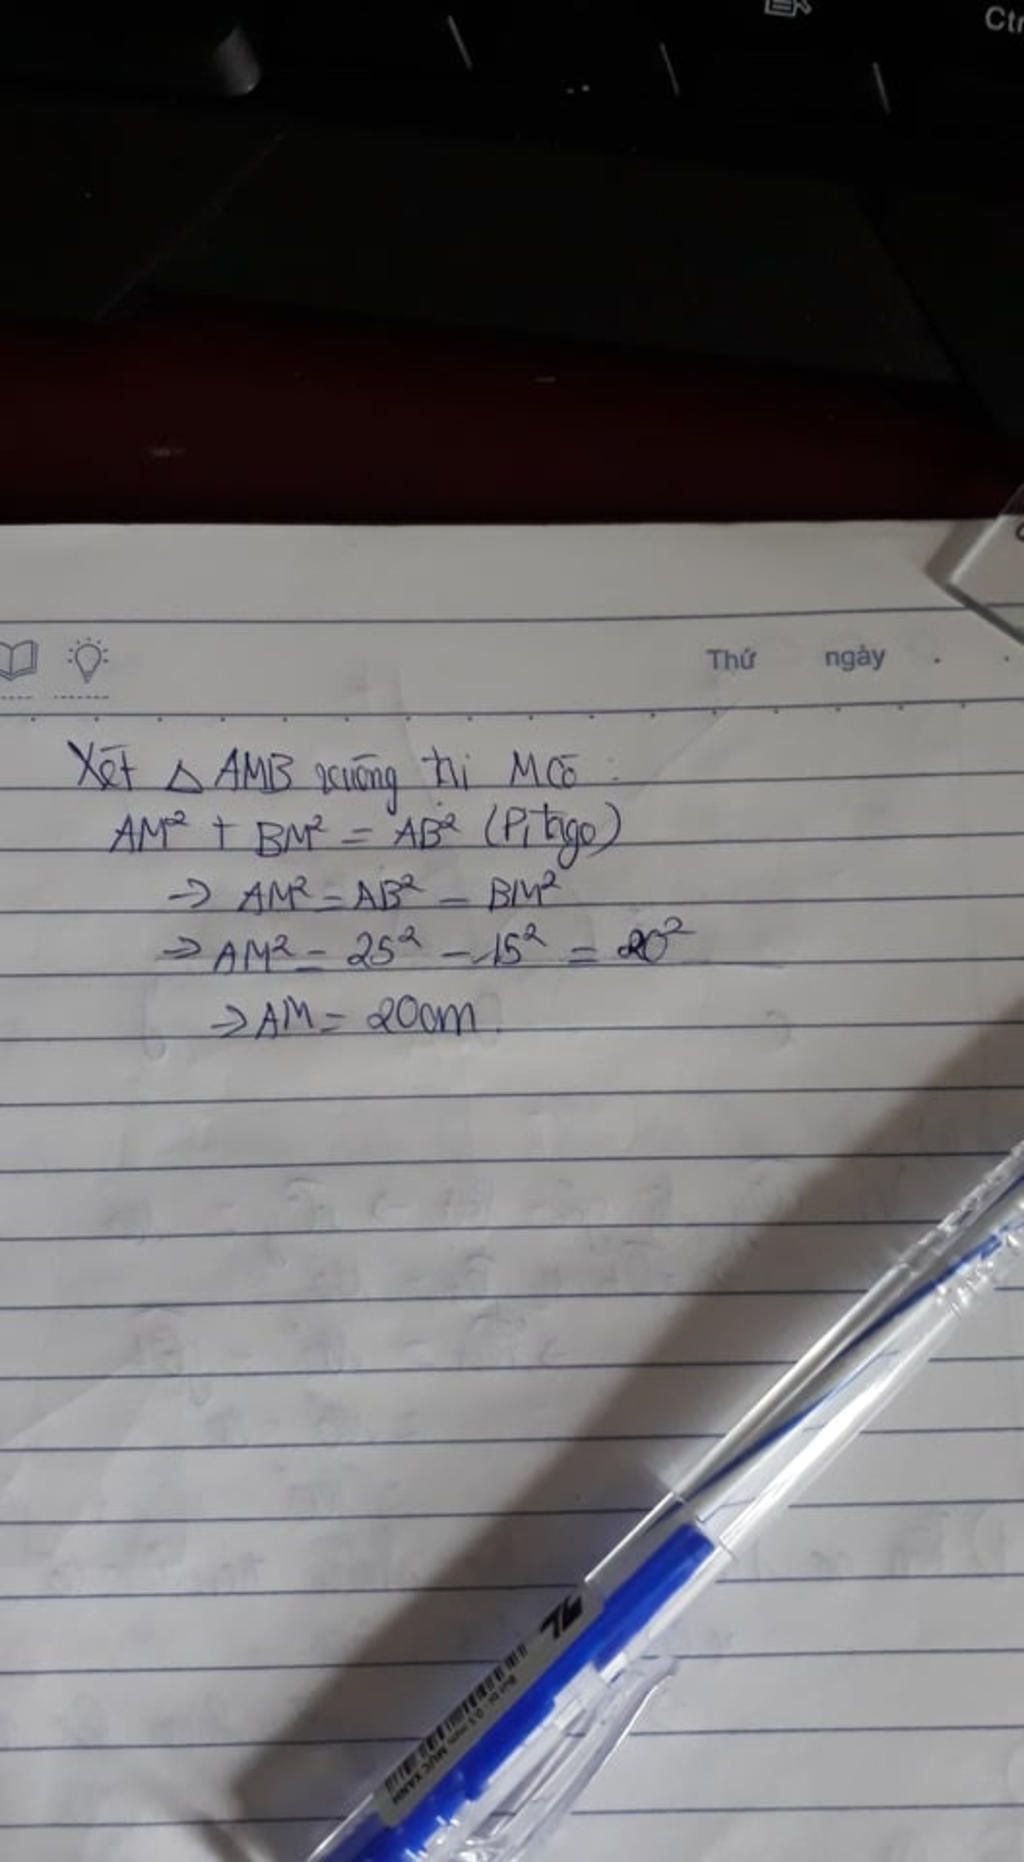 Ctr
Thứ ngày
Xét △ AMB vuông tại M có :
AM² + BM² = AB² (Pitago)
→ AM² = AB² - BM²
⇒ AM² = 25² - 15² = 20²
⇒ AM = 20cm
TL
Bút bi - 0.5 mm, MỰC XANH